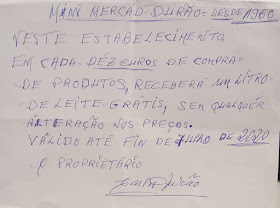 MINI MERCADO DURÃO = DESDE 1960
NESTE ESTABELECIMENTO
EM CADA DEZ EUROS DE COMPRA =
= DE PRODUTOS, RECEBERÁ UM LITRO =
= DE LEITE GRÁTIS, SEM QUALQUER
ALTERAÇÃO NOS PREÇOS.
VÁLIDO ATÉ FIM DE JULHO DE 2020
O PROPRIETÁRIO
Durão